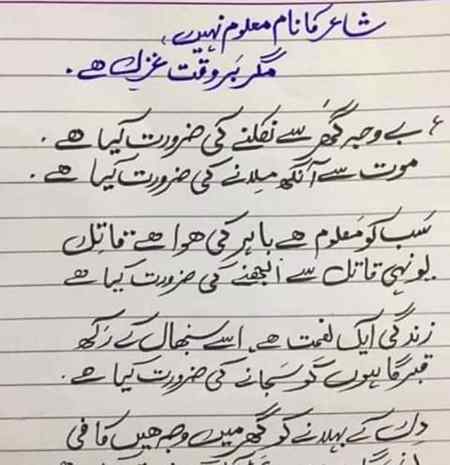 شاعر کا نام معلوم نہیں،
مگر بَر وقت غزل ہے.
؏ بے وجہ گھر سے نکلنے کی ضرورت کیا ہے.
موت سے آنکھ مِلانے کی ضرورت کیا ہے.
سَب کو مَعلوم ہے باہر کی ہوا ہے قاتِل
یونہی قاتل سے الجھنے کی ضرورت کیا ہے
زندگی ایک نعمت ہے، اسے سنبھال کے رَکھ
قبر گاہوں کو سَجانے کی ضرورت کیا ہے.
دِل کے بہلانے کو گھر میں وجہ ھیں کافی